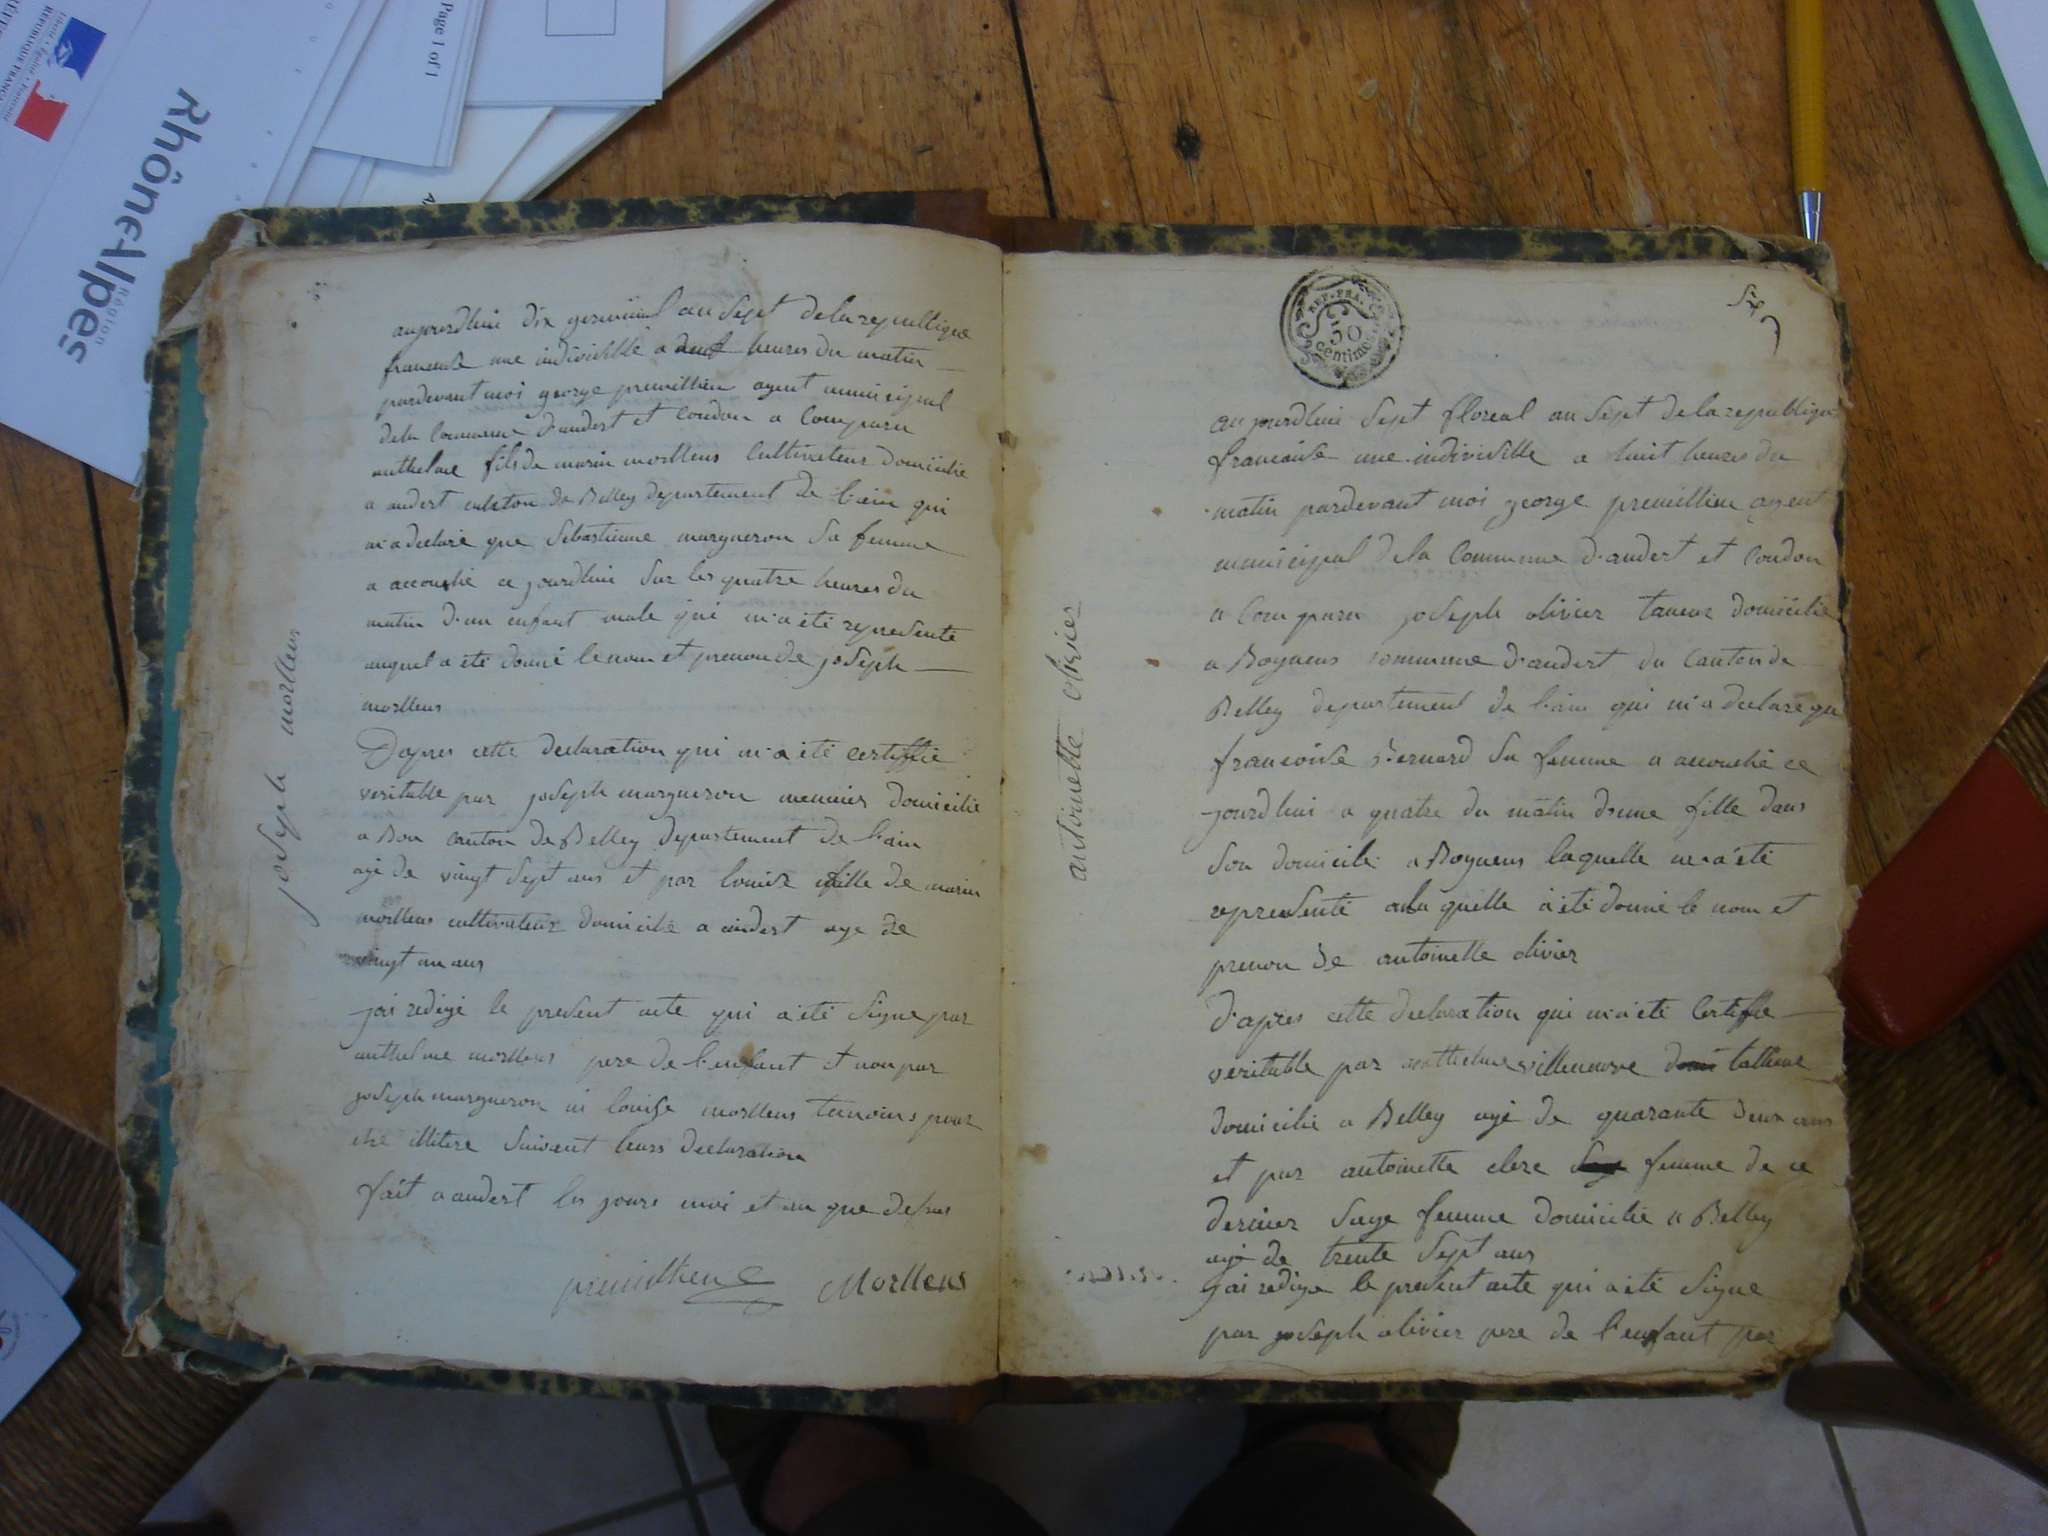 Liberté • Égalité • Fraternité
RÉPUBLIQUE FRANÇAISE
Rhône-Alpes
Région
Page 1 of 1
joseph morllens
aujourdhui dix germinal an Sept de la republique
francaise une indivisible a neuf heures du matin
pardevant moi george premillieu agent municipal
de la Commune d'andert et Condon a Comparu
anthelme fils de marin morllens Cultivateur domicilie
a andert canton de Belley departement de l'ain qui
m'a declaré que Sebastienne margueron Sa femme
a accouché ce jourdhui Sur les quatre heures du
matin d'un enfant male qui m'a été représenté
auquel a été donné le nom et prenon de joseph
morllens
Dapres cette declaration qui m'a été certiffié
veritable par joseph margueron meunier domicilié
a Bon canton de Belley departement de l'ain
agé de vingt Sept ans et par louise fille de marin
morllens cultivateur domicilié a andert age de
vingt un ans
jai redigé le present acte qui a été Signe par
anthelme morllens pere de l'enfant et non par
joseph margueron ni louise morllens temoins pour
etre illitere Suivent leurs declaration
fait a andert les jours moi et an que desus
premillieu Morllens
REP. FRA.
50
centimes
Six
antoinette olivier
aujourdhui Sept floreal an Sept de la republique
francaise une indivisible a huit heures du
matin pardevant moi george premillieu agent
municipal de la Commune d'andert et Condon
a Comparu joseph olivier taneur domicilié
a Bognens commune d'andert du Canton de
Belley departement de l'ain qui m'a declaré que
francoise Bernard Sa femme a accouché ce
jourdhui a quatre du matin dune fille dans
Son domicile a Bognens laquelle m'a été
representé a la quelle a été donné le nom et
prenon de antoinette olivier
D'apres cette declaration qui m'a été Certiffié
veritable par anthelme villeneuve
domicilié a Belley agé de quarante deux ans
et par antoinette clerc femme de ce
dernier Sage femme domicilié a Belley
agé de trente Sept ans
jai redige le present acte qui a été Signe
par joseph olivier pere de l'enfant par